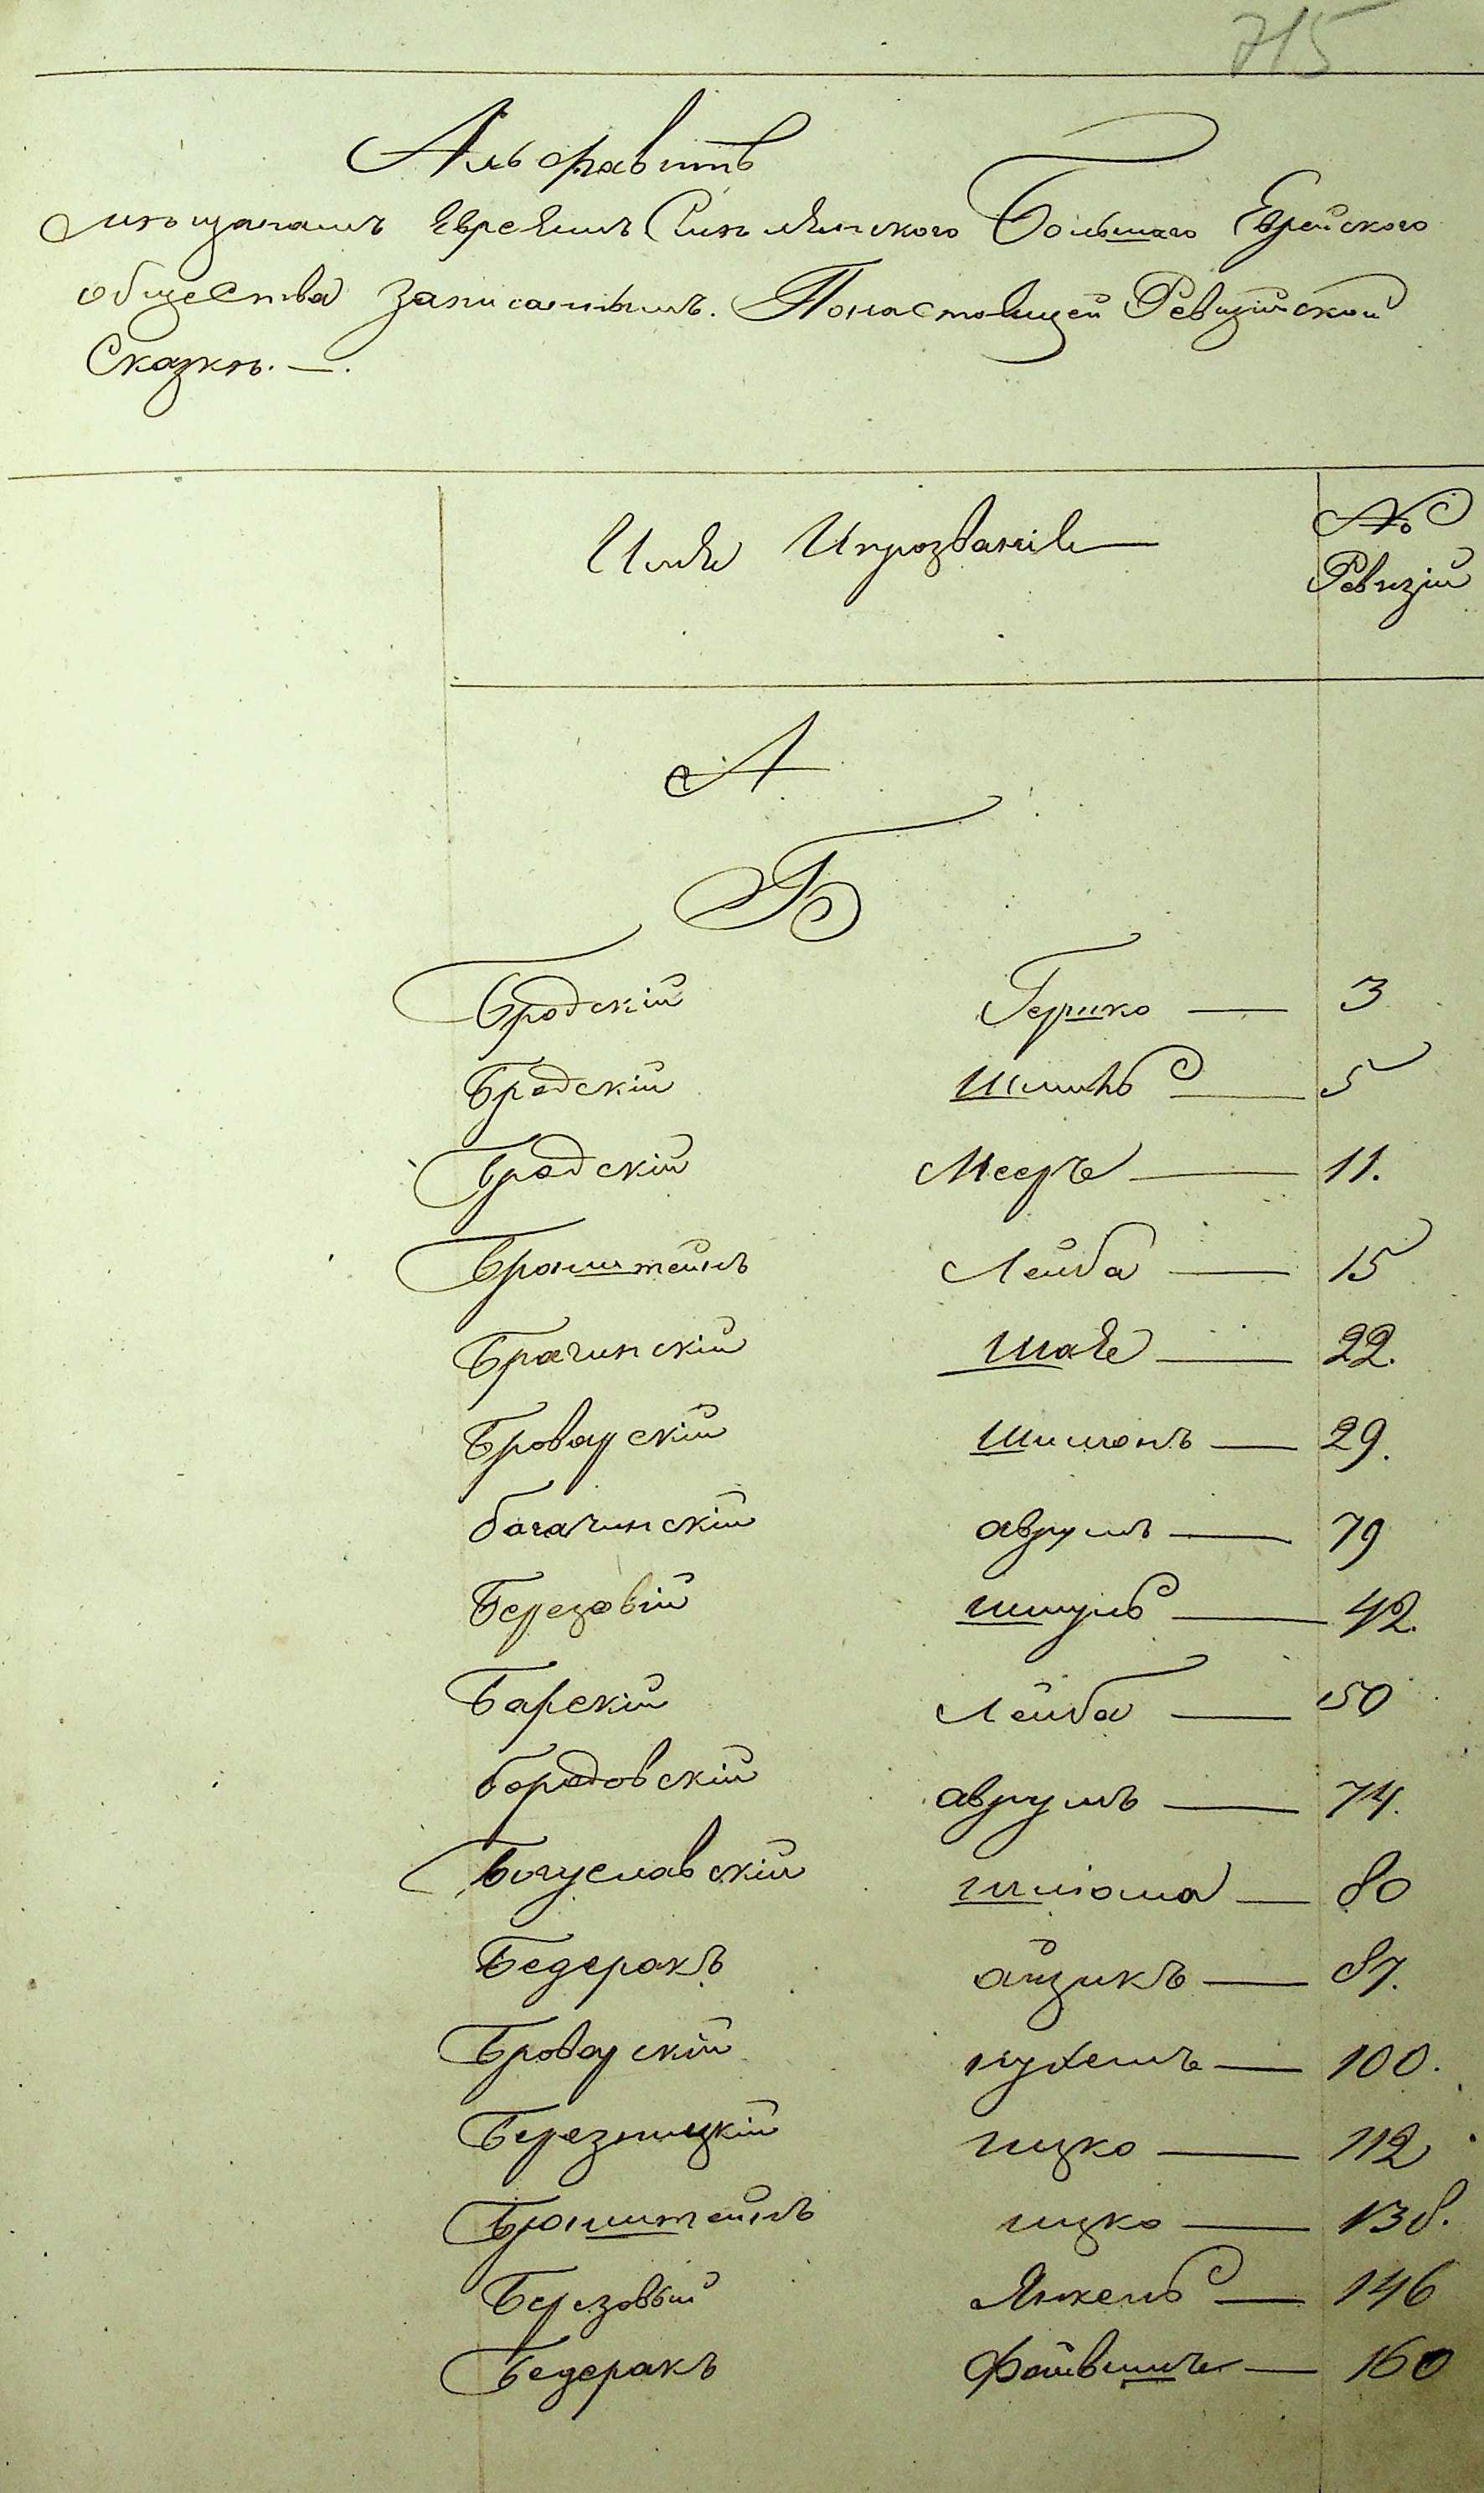 715
Альфавитъ
мѣщанамъ Евреямъ Смѣлянского Большаго Еврейского
общества записаннымъ. Понастоящей Ревизійской
Сказкѣ. —.
Имя Ипрозваніе
№
Ревизіи
А
Б
Бродскій Гершко — 3
Бродскій Шмиль — 5
Бродскій Мееръ — 11.
Бронштейнъ Лейба — 15
Брагинскій Шае — 22.
Броварскій Шимонъ — 29.
богачинскій аврумъ — 79
Березовій шмуль — 42.
Барскій Лейба — 50
бородовскій аврумъ — 74.
Богуславскій шлiома — 80
Бедеракъ айзикъ — 87.
Броварскій нухемъ — 100.
Березницкій ицко — 112
Бронштейнъ ицко — 138.
Березовый Янкель — 146
Бедеракъ Файвишъ — 160